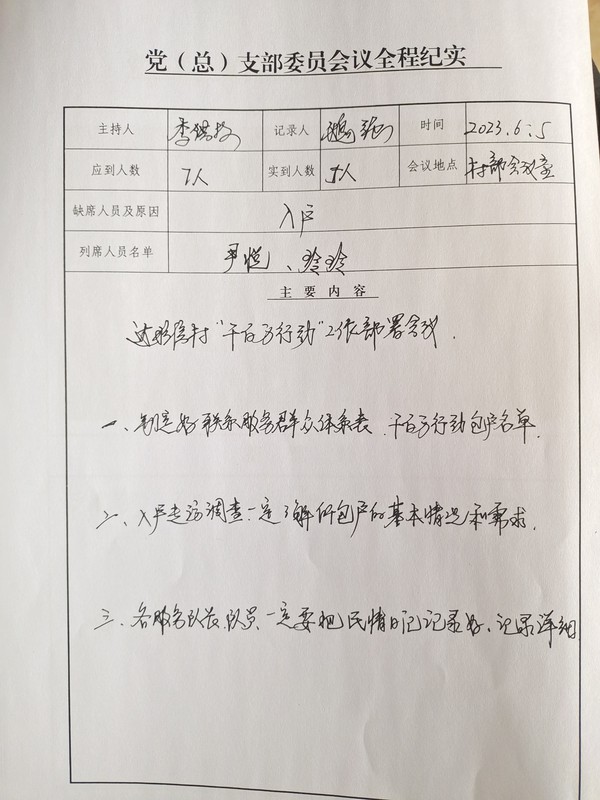 党（总）支部委员会议全程纪实
主持人 李 记录人 时间 2023.6.5
应到人数 7人 实到人数 人 会议地点 村部会议室
缺席人员及原因 入户
列席人员名单 尹悦、玲玲
主要内容
村“千百万行动”工作部署会议.
一、制定好联系服务群众体系表.千百万行动包户名单.
二、入户走访调查一定了解所包户的基本情况和需求.
三、各服务队长、队员、一定要把民情日记记录好、记录详细